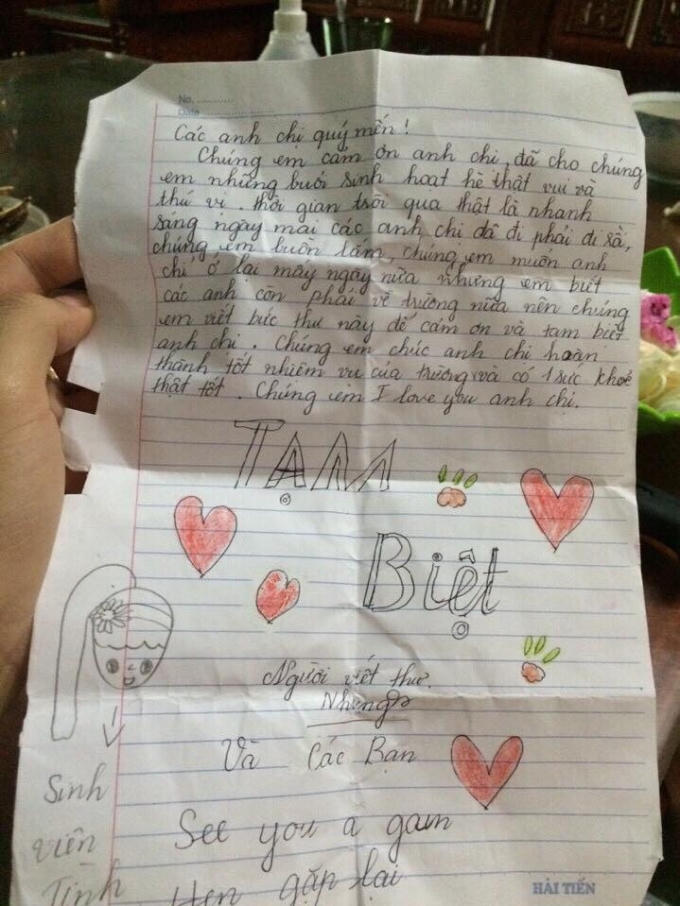 No. ............
Date ............
Các anh chị quý mến !
Chúng em cảm ơn anh chị, đã cho chúng
em những buổi sinh hoạt hè thật vui và
thú vị. Thời gian trôi qua thật là nhanh
sáng ngày mai các anh chị đã đi phải đi rồi,
chúng em buồn lắm, chúng em muốn anh
chị ở lại mấy ngày nữa nhưng em biết
các anh còn phải về trường nữa nên chúng
em viết bức thư này để cảm ơn và tạm biệt
anh chị. Chúng em chúc anh chị hoàn
thành tốt nhiệm vụ của trường và có 1 sức khoẻ
thật tốt. Chúng em I love you anh chị.
TẠM
BIệt
Người viết thư.
Nhung
Và Các Bạn
See you a gain
Hẹn gặp lại
Sinh
viên
Tình
HẢI TIẾN